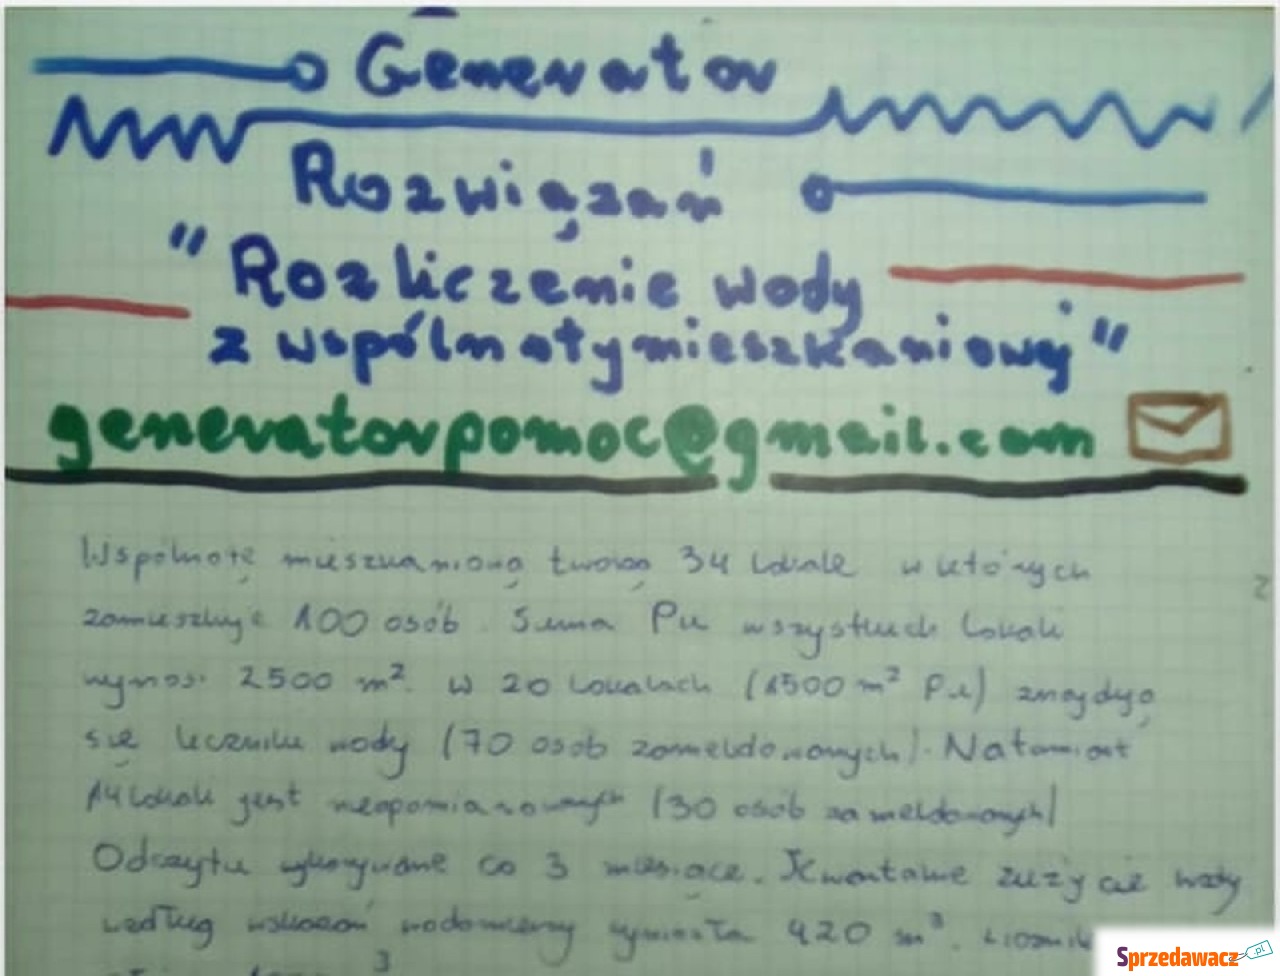 Generator
Rozwiązań
"Rozliczenie wody
z wspólnoty mieszkaniowej"
generatorpomoc@gmail.com
Wspólnotę mieszkaniową tworzą 34 lokale w których
zamieszkuje 100 osób. Suma Pu wszystkich lokali
wynosi 2500 m². W 20 lokalach (1500 m² Pu) znajdują
się liczniki wody (70 osób zameldowanych). Natomiast
14 lokali jest nieopomiarowanych (30 osób zameldowanych)
Odczytu wykonywane co 3 miesiące. Kwartalne zużycie wody
według wskazań wodomierzy wyniosła 420 m³.
3
Sprzedawacz.pl